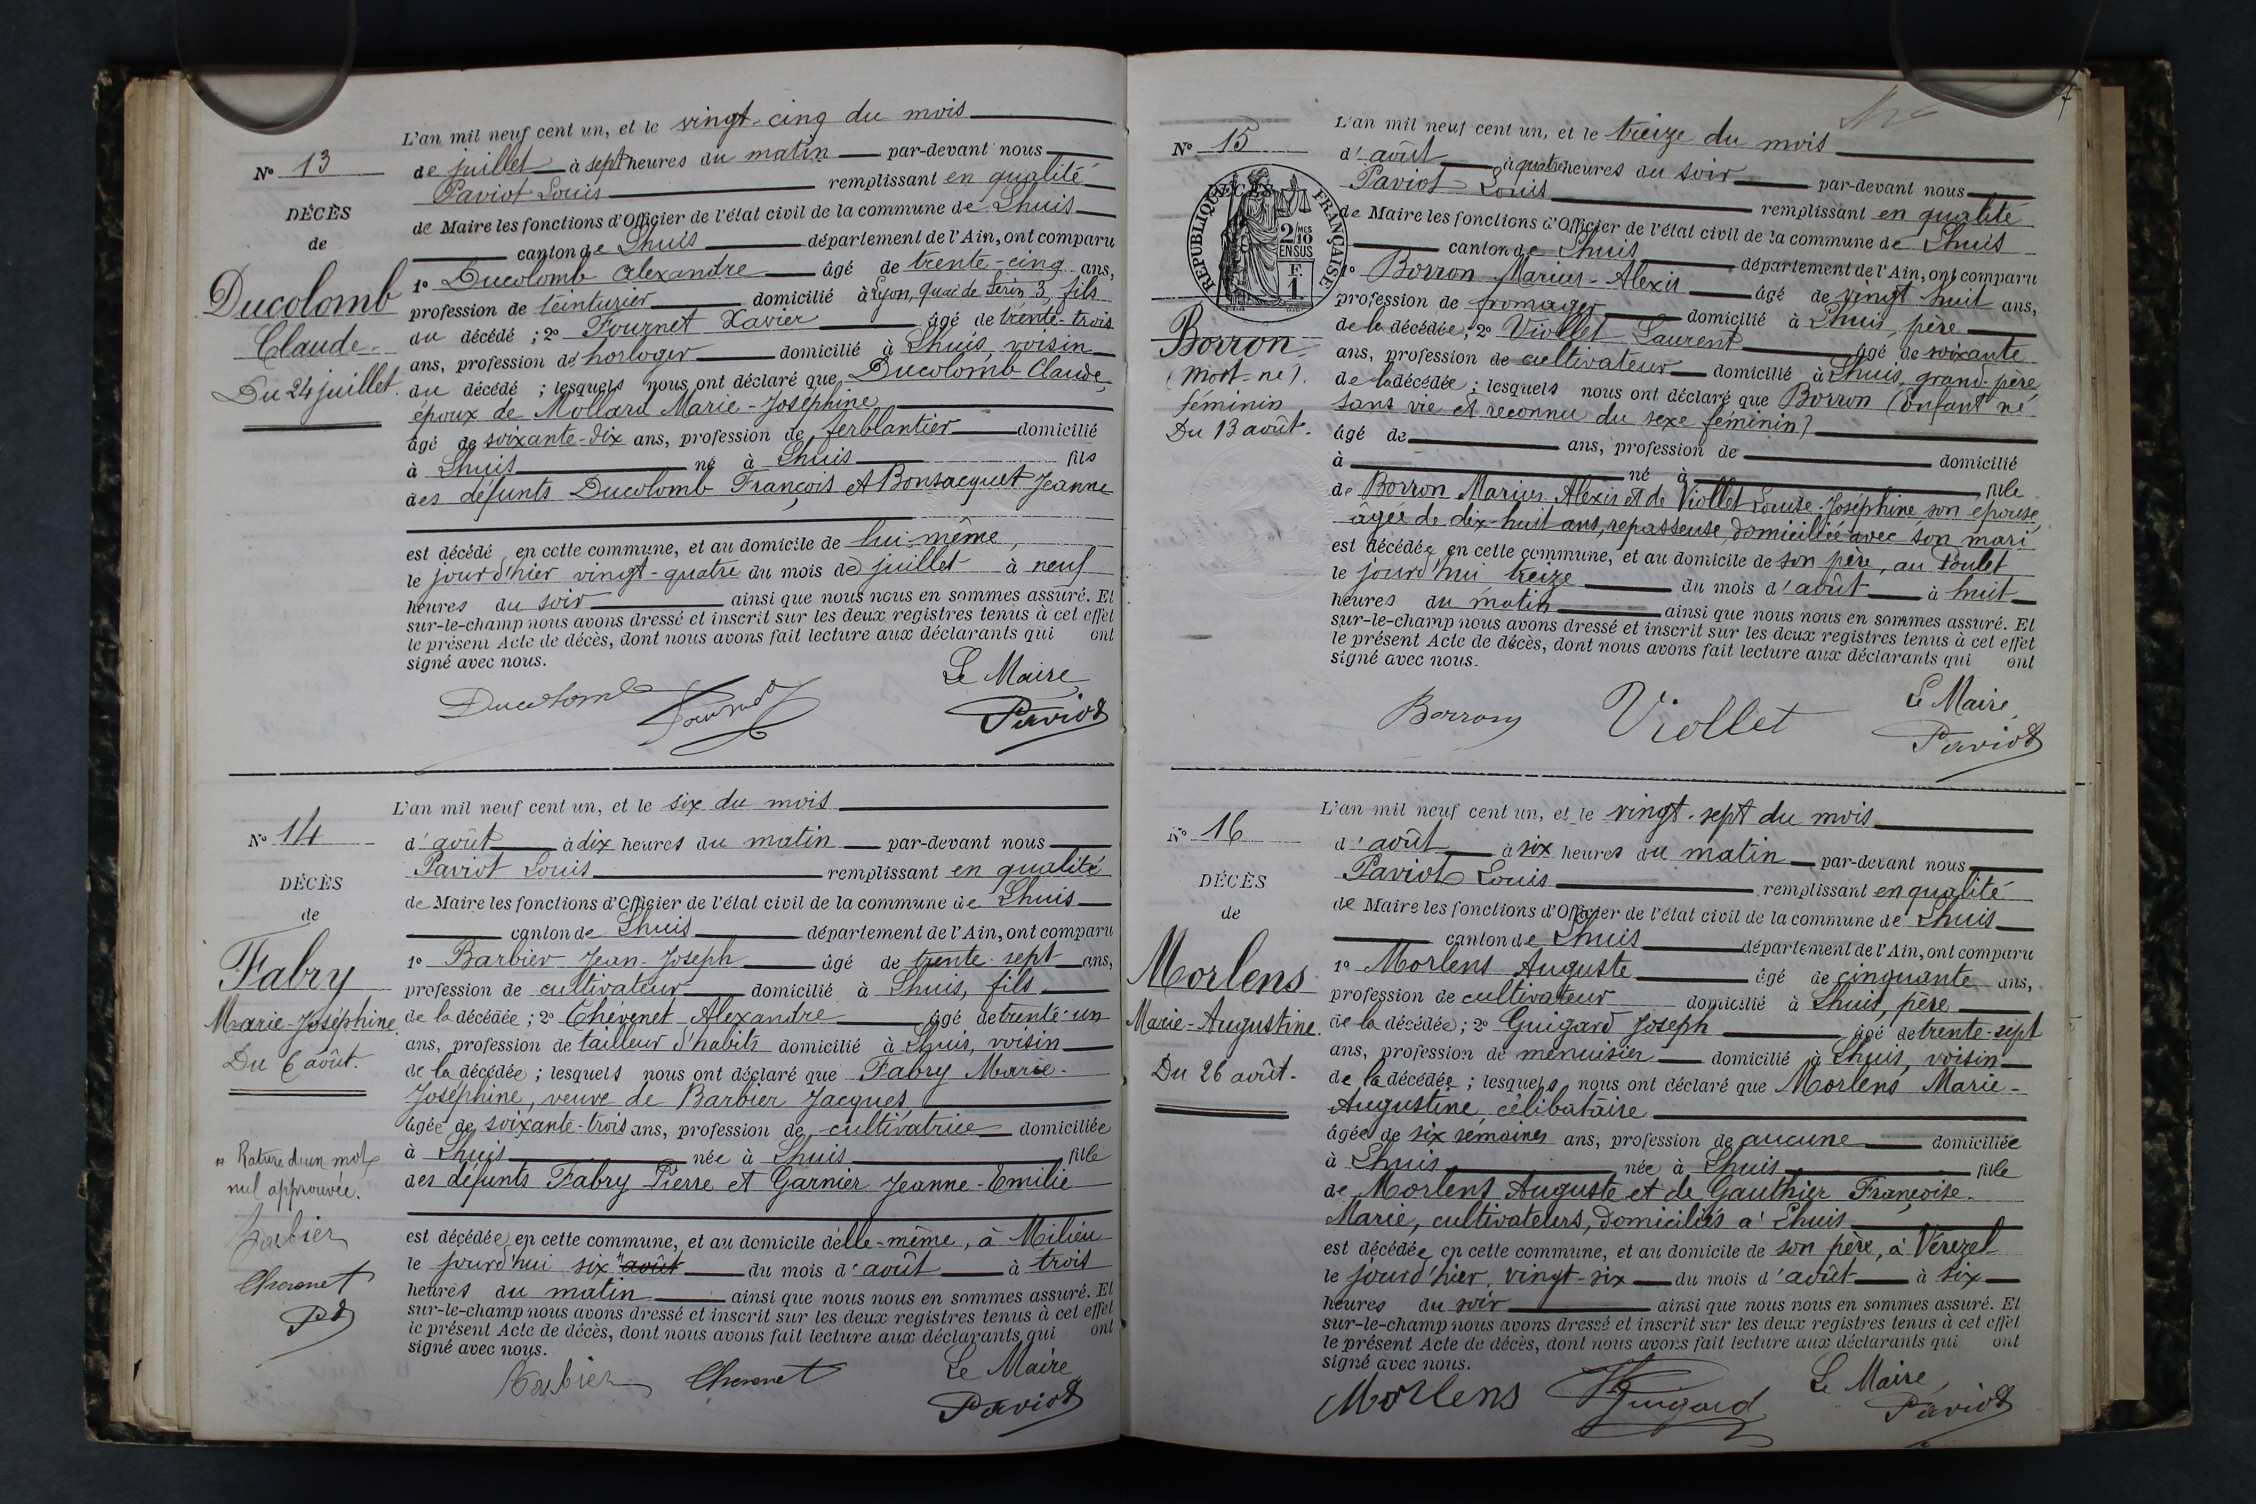 L'an mil neuf cent un, et le vingt-cinq du mois
Nº 13
de juillet à sept heures du matin par-devant nous
Paviot Louis remplissant en qualité
DÉCÈS
de Maire les fonctions d'Officier de l'état civil de la commune de Lhuis
de
canton de Lhuis département de l'Ain, ont comparu
Ducolomb
1º Ducolomb Alexandre âgé de trente-cinq ans,
profession de teinturier domicilié à Lyon, quai de Serin 3, fils
Claude
du décédé ; 2º Fournet Xavier âgé de trente-trois
ans, profession de horloger domicilié à Lhuis, voisin
Du 24 juillet.
du décédé ; lesquels nous ont déclaré que Ducolomb Claude,
époux de Mollard Marie-Joséphine
âgé de soixante-dix ans, profession de ferblantier domicilié
à Lhuis né à Lhuis fils
des défunts Ducolomb François et Bonsacquet Jeanne
est décédé en cette commune, et au domicile de lui-même,
le jourd'hier vingt-quatre du mois de juillet à neuf
heures du soir ainsi que nous nous en sommes assuré. Et
sur-le-champ nous avons dressé et inscrit sur les deux registres tenus à cet effet
le présent Acte de décès, dont nous avons fait lecture aux déclarants qui ont
signé avec nous.
Le Maire
Ducolomb Fournet Paviot
L'an mil neuf cent un, et le six du mois
Nº 14
d'août à dix heures du matin par-devant nous
Paviot Louis remplissant en qualité
DÉCÈS
de Maire les fonctions d'Officier de l'état civil de la commune de Lhuis
de
canton de Lhuis département de l'Ain, ont comparu
Fabry
1º Barbier Jean-Joseph âgé de trente-sept ans,
profession de cultivateur domicilié à Lhuis, fils
Marie-Joséphine.
de la décédée ; 2º Chévenet Alexandre âgé de trente-un
ans, profession de tailleur d'habits domicilié à Lhuis, voisin
Du 6 août.
de la décédée ; lesquels nous ont déclaré que Fabry Marie-
Joséphine, veuve de Barbier Jacques
âgée de soixante-trois ans, profession de cultivatrice domiciliée
à Lhuis née à Lhuis fille
" Rature d'un mot
nul approuvée.
des défunts Fabry Pierre et Garnier Jeanne-Emilie
Barbier
est décédée en cette commune, et au domicile d'elle-même, à Milieu
le jourd'hui six "août du mois d'août à trois
Chevenet
heures du matin ainsi que nous nous en sommes assuré. Et
sur-le-champ nous avons dressé et inscrit sur les deux registres tenus à cet effet
le présent Acte de décès, dont nous avons fait lecture aux déclarants qui ont
signé avec nous.
Le Maire
Barbier Chevenet Paviot
L'an mil neuf cent un, et le treize du mois
Nº 15
d'août à quatre heures du soir par-devant nous
Paviot Louis remplissant en qualité
DÉCÈS
RÉPUBLIQUE FRANÇAISE
2/10 MES
EN SUS
F.
1
de Maire les fonctions d'Officier de l'état civil de la commune de Lhuis
canton de Lhuis département de l'Ain, ont comparu
1º Borron Marius-Alexis âgé de vingt-huit ans,
profession de fromager domicilié à Lhuis, père
Borron
de la décédée ; 2º Viollet Laurent âgé de soixante
(mort-né).
ans, profession de cultivateur domicilié à Lhuis, grand-père
féminin
de la décédée ; lesquels nous ont déclaré que Borron (enfant né
Du 13 août.
sans vie et reconnu du sexe féminin)
âgé de ans, profession de domicilié
à né à fille
de Borron Marius Alexis et de Viollet Louise-Joséphine, son épouse,
âgée de dix-huit ans, repasseuse domiciliée avec son mari,
est décédée en cette commune, et au domicile de son père, au Poulet
le jourd'hui treize du mois d'août à huit
heures du matin ainsi que nous nous en sommes assuré. Et
sur-le-champ nous avons dressé et inscrit sur les deux registres tenus à cet effet
le présent Acte de décès, dont nous avons fait lecture aux déclarants qui ont
signé avec nous.
Le Maire,
Borron Viollet Paviot
L'an mil neuf cent un, et le vingt-sept du mois
Nº 16
d'août à six heures du matin par-devant nous
Paviot Louis remplissant en qualité
DÉCÈS
de Maire les fonctions d'Officier de l'état civil de la commune de Lhuis
de
canton de Lhuis département de l'Ain, ont comparu
Morlens
1º Morlens Auguste âgé de cinquante ans,
profession de cultivateur domicilié à Lhuis, père
Marie-Augustine.
de la décédée ; 2º Guigard Joseph âgé de trente-sept
ans, profession de menuisier domicilié à Lhuis, voisin
Du 26 août.
de la décédée ; lesquels nous ont déclaré que Morlens Marie-
Augustine, célibataire
âgée de six semaines ans, profession de aucune domiciliée
à Lhuis née à Lhuis fille
de Morlens Auguste et de Gauthier Françoise-
Marie, cultivateurs, domiciliés à Lhuis
est décédée en cette commune, et au domicile de son père, à Vérizel
le jourd'hier, vingt-six du mois d'août à six
heures du soir ainsi que nous nous en sommes assuré. Et
sur-le-champ nous avons dressé et inscrit sur les deux registres tenus à cet effet
le présent Acte de décès, dont nous avons fait lecture aux déclarants qui ont
signé avec nous.
Le Maire,
Morlens Guigard Paviot